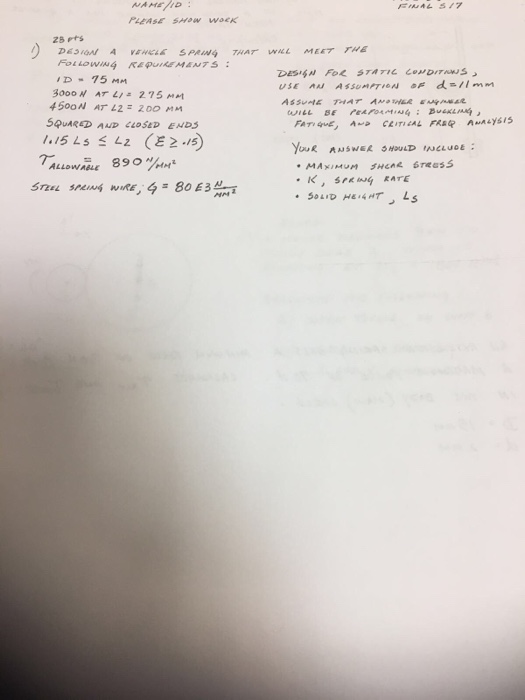 NAME/ID :
FINAL S17
PLEASE SHOW WORK
25 PTS
1) DESIGN A VEHICLE SPRING THAT WILL MEET THE
FOLLOWING REQUIREMENTS :
ID = 75 MM
3000 N AT L1 = 275 MM
4500N AT L2 = 200 MM
SQUARED AND CLOSED ENDS
1.15 LS ≤ L2 (ξ ≥ .15)
τ ALLOWABLE = 890 N/MM²
STEEL SPRING WIRE, G = 80 E3 N/MM²
DESIGN FOR STATIC CONDITIONS,
USE AN ASSUMPTION OF d=11mm
ASSUME THAT ANOTHER ENGINEER
WILL BE PERFORMING : BUCKLING,
FATIGUE, AND CRITICAL FREQ ANALYSIS
YOUR ANSWER SHOULD INCLUDE :
• MAXIMUM SHEAR STRESS
• K, SPRING RATE
• SOLID HEIGHT, LS